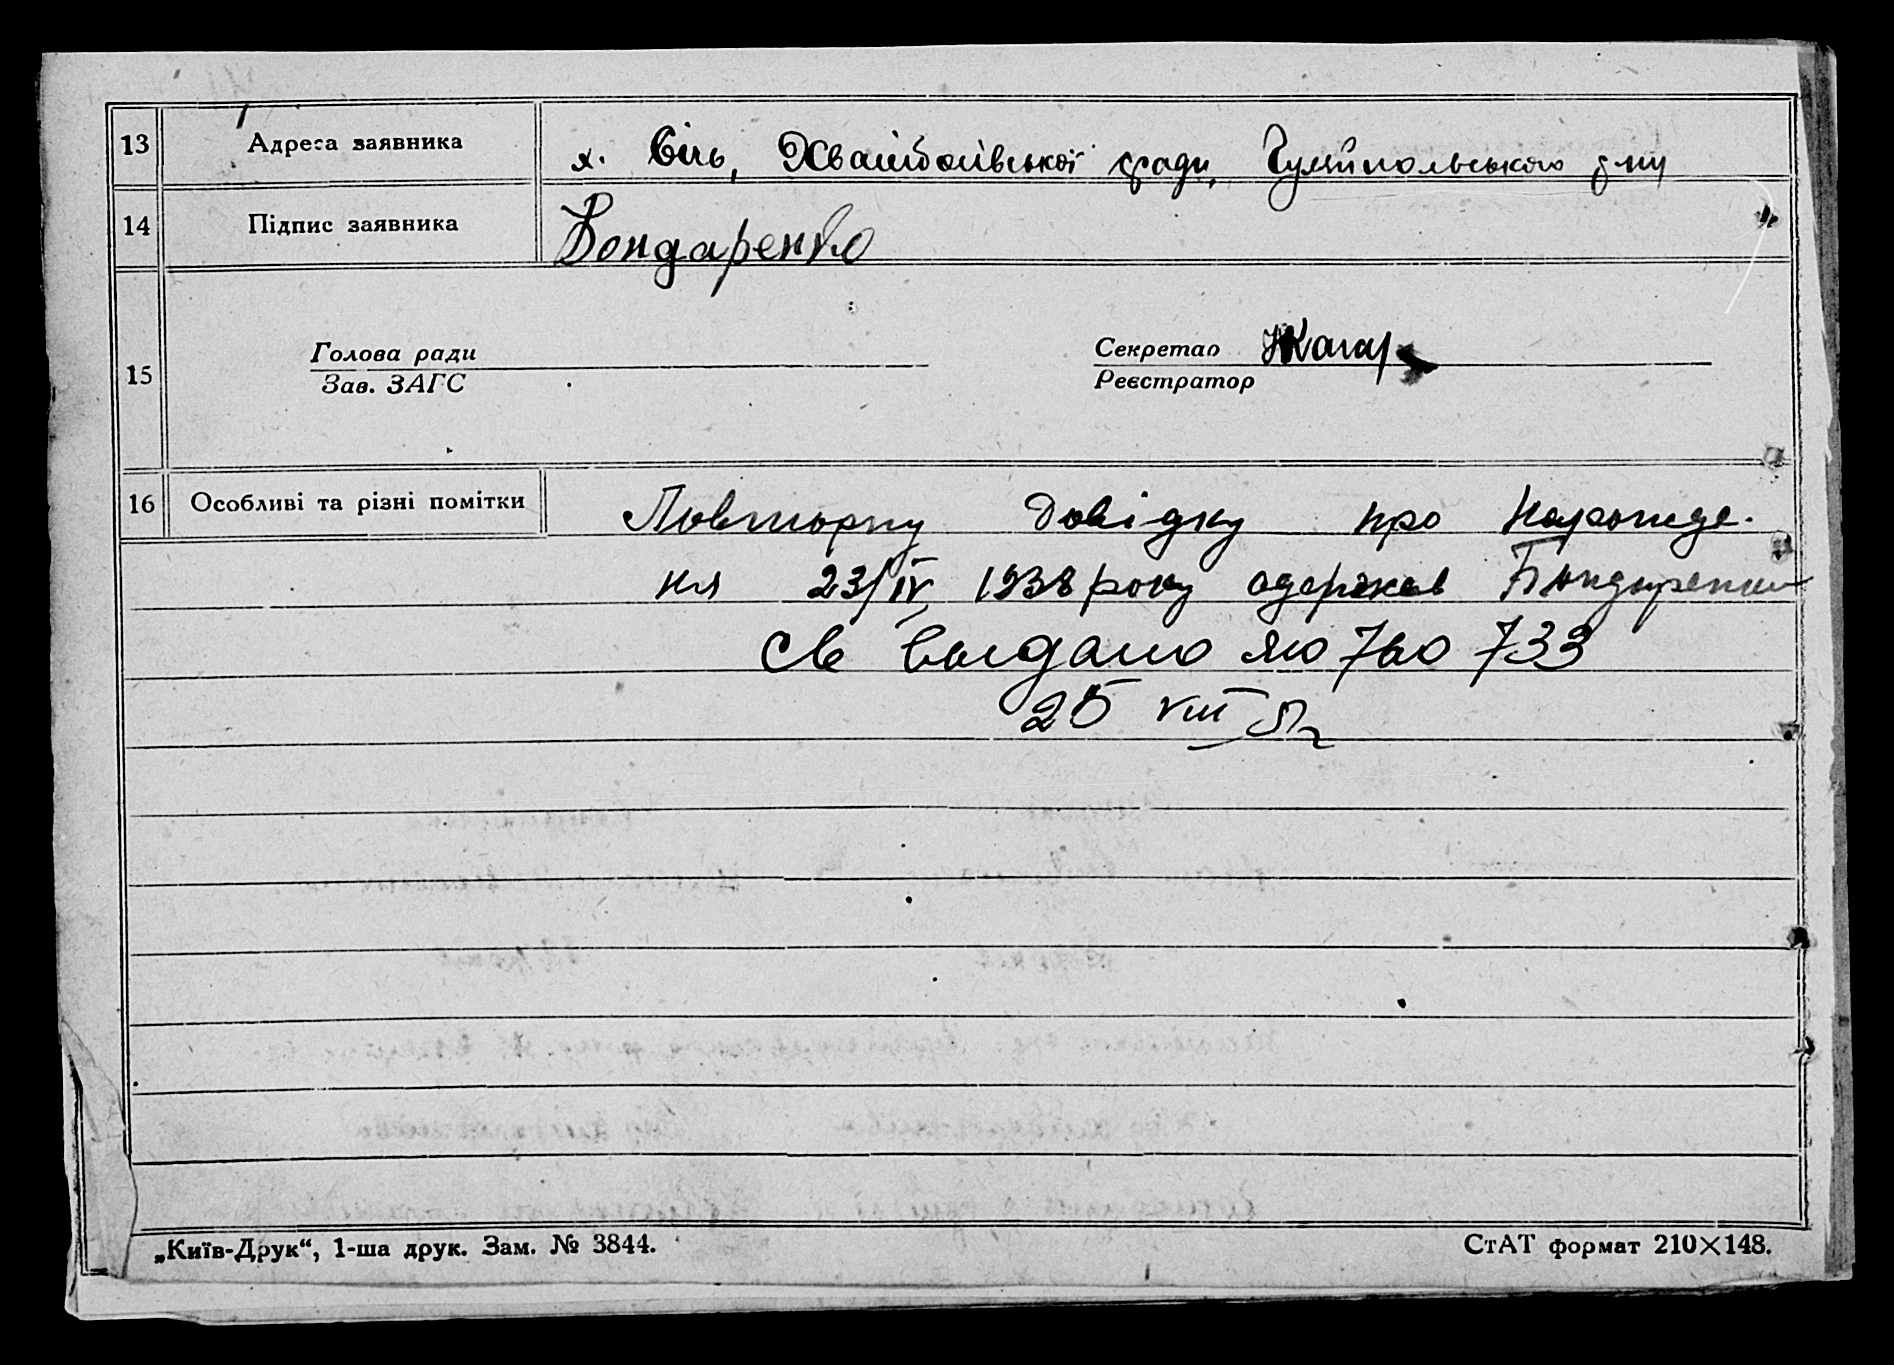 13 Адреса заявника х. Віль, сради, Гуляйпольського р-ну
14 Підпис заявника Бондаренко
Голова ради Секретар
15
Зав. ЗАГС Реєстратор
16 Особливі та різні помітки Повторну довідку про народже-
ня 23/IV 1938 року одержав Бондаренко
Св выдано ЯЮ 760 733
25 VIII
„Київ-Друк“, 1-ша друк. Зам. № 3844. СтАТ формат 210×148.